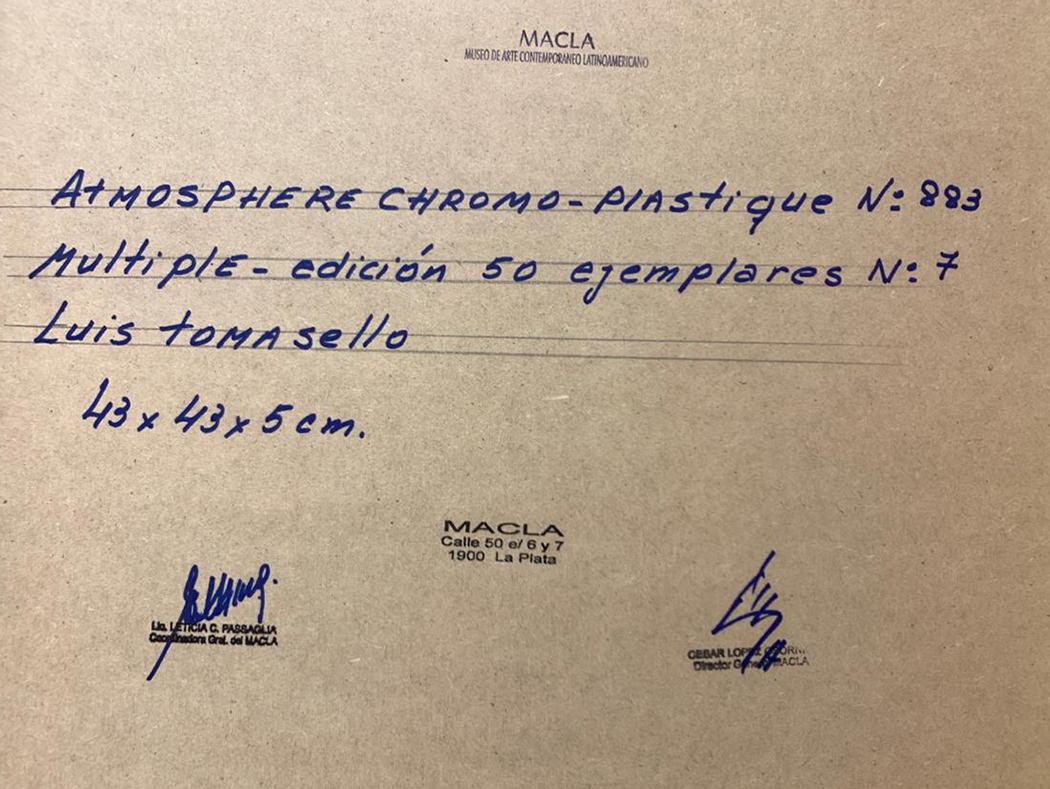 MACLA
MUSEO DE ARTE CONTEMPORANEO LATINOAMERICANO
ATMOSPHERE CHROMO-PLAStique Nº 883
MultiplE - edición 50 ejemplares Nº 7
Luis tOMAsello
43 x 43 x 5 cm.
MACLA
Calle 50 e/ 6 y 7
1900 La Plata
Lic. LETICIA C. PASSAGLIA
Coordinadora Gral. del MACLA
CESAR LOPEZ
Director MACLA